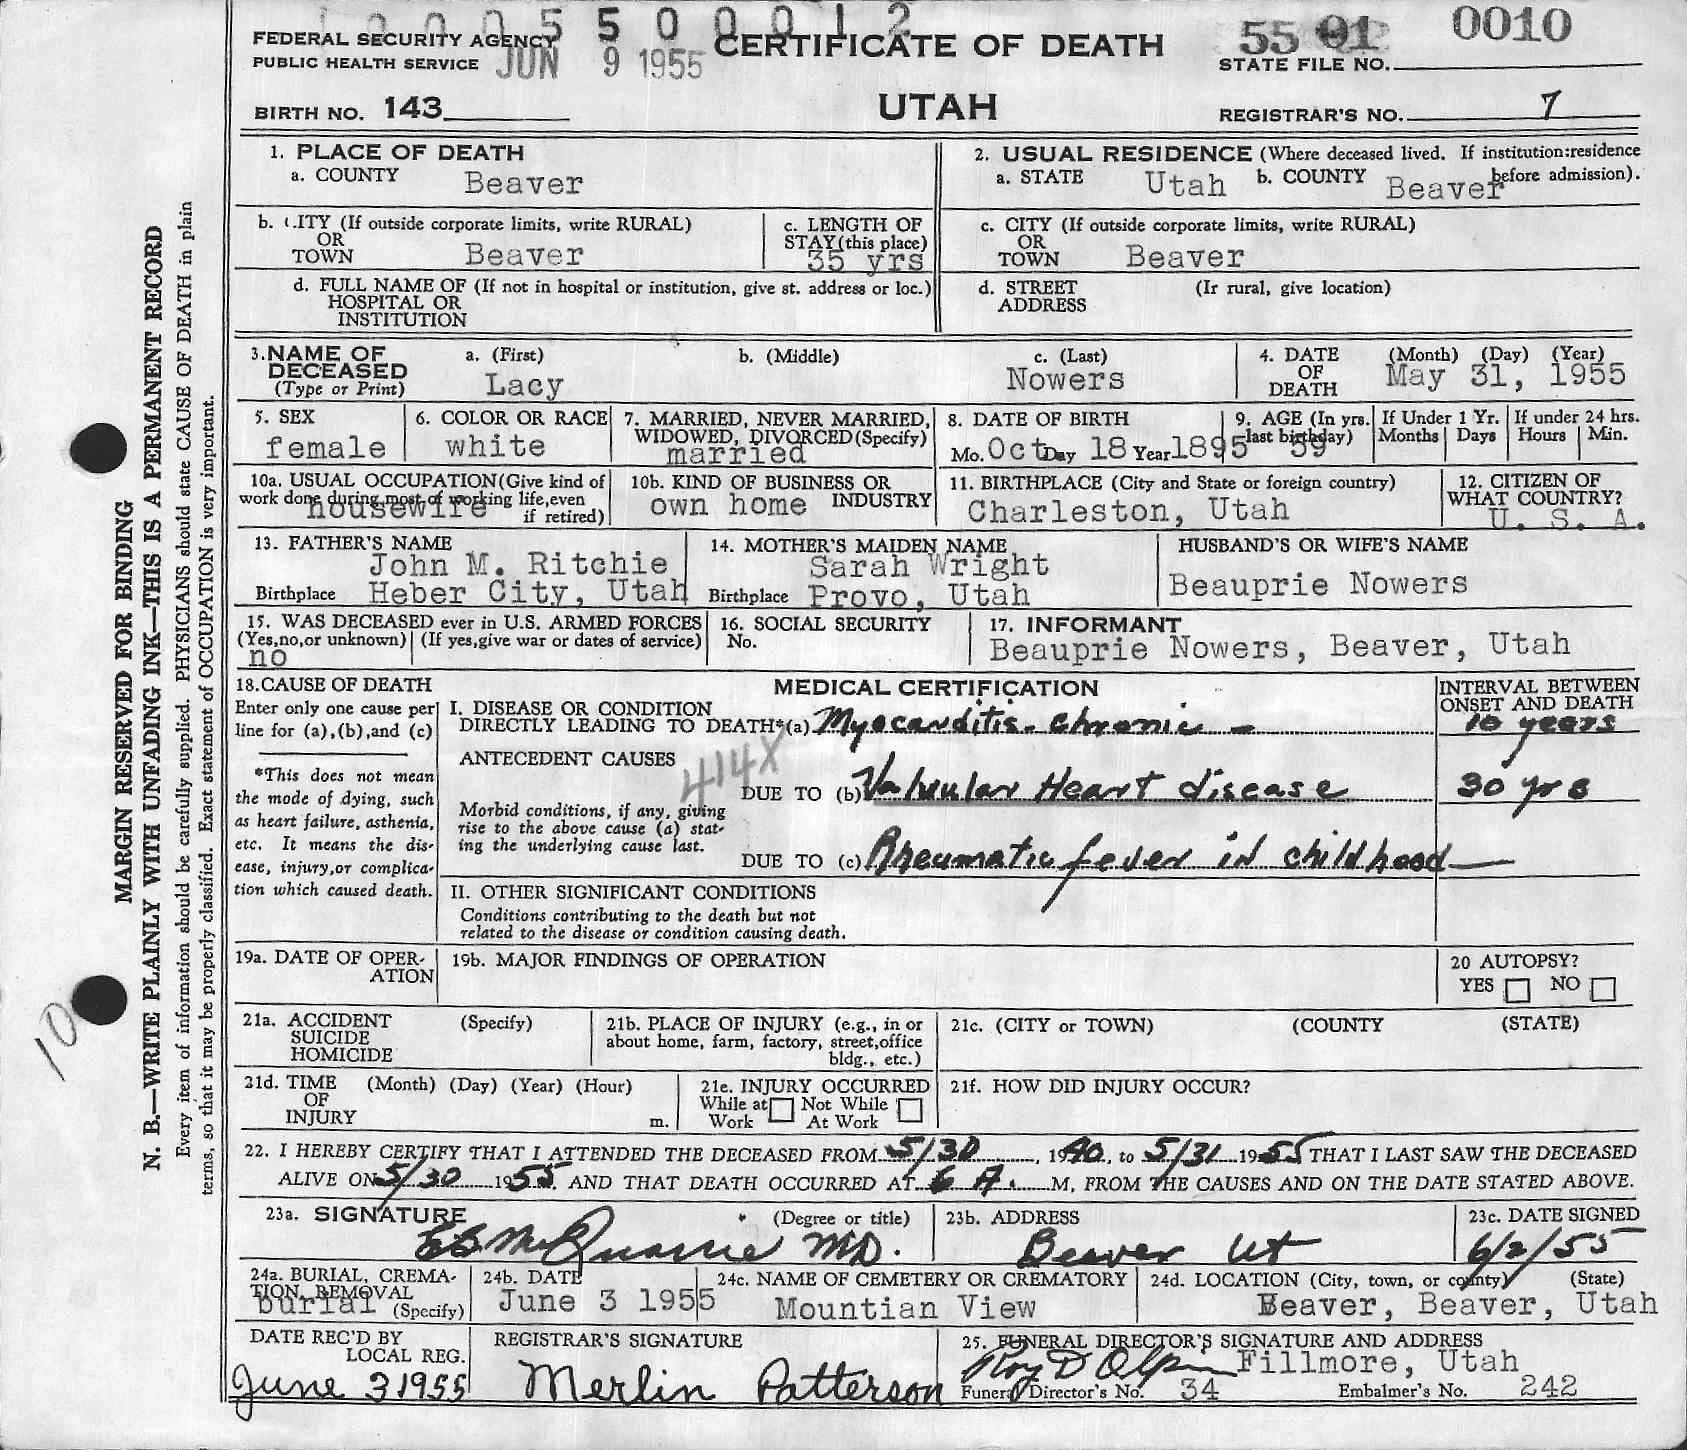 1 0 0 0 5 5 5 0 0 0 1 2
FEDERAL SECURITY AGENCY
PUBLIC HEALTH SERVICE
JUN 9 1955
CERTIFICATE OF DEATH
55 01 0010
STATE FILE NO.
BIRTH NO. 143
UTAH
REGISTRAR'S NO. 7
1. PLACE OF DEATH
a. COUNTY Beaver
2. USUAL RESIDENCE (Where deceased lived. If institution:residence before admission).
a. STATE Utah b. COUNTY Beaver
b. CITY (If outside corporate limits, write RURAL)
OR
TOWN Beaver
c. LENGTH OF
STAY(this place)
35 yrs
c. CITY (If outside corporate limits, write RURAL)
OR
TOWN Beaver
d. FULL NAME OF (If not in hospital or institution, give st. address or loc.)
HOSPITAL OR
INSTITUTION
d. STREET (If rural, give location)
ADDRESS
3. NAME OF
DECEASED
(Type or Print)
a. (First) Lacy
b. (Middle)
c. (Last) Nowers
4. DATE
OF
DEATH
(Month) (Day) (Year)
May 31, 1955
5. SEX
female
6. COLOR OR RACE
white
7. MARRIED, NEVER MARRIED,
WIDOWED, DIVORCED(Specify)
married
8. DATE OF BIRTH
Mo. Oct Day 18 Year 1895
9. AGE (In yrs.
last birthday)
59
If Under 1 Yr.
Months Days
If under 24 hrs.
Hours Min.
10a. USUAL OCCUPATION(Give kind of
work done during most of working life,even
if retired)
housewife
10b. KIND OF BUSINESS OR
INDUSTRY
own home
11. BIRTHPLACE (City and State or foreign country)
Charleston, Utah
12. CITIZEN OF
WHAT COUNTRY?
U. S. A.
13. FATHER'S NAME
John M. Ritchie
Birthplace Heber City, Utah
14. MOTHER'S MAIDEN NAME
Sarah Wright
Birthplace Provo, Utah
HUSBAND'S OR WIFE'S NAME
Beauprie Nowers
15. WAS DECEASED ever in U.S. ARMED FORCES
(Yes,no,or unknown) (If yes,give war or dates of service)
no
16. SOCIAL SECURITY
No.
17. INFORMANT
Beauprie Nowers, Beaver, Utah
18.CAUSE OF DEATH
Enter only one cause per
line for (a),(b),and (c)
*This does not mean
the mode of dying, such
as heart failure, asthenia,
etc. It means the dis-
ease, injury,or complica-
tion which caused death.
MEDICAL CERTIFICATION
INTERVAL BETWEEN
ONSET AND DEATH
I. DISEASE OR CONDITION
DIRECTLY LEADING TO DEATH*(a) Myocarditis - chronic - 10 years
ANTECEDENT CAUSES
414X
DUE TO (b) Valvular Heart disease 30 yrs
Morbid conditions, if any, giving
rise to the above cause (a) stat-
ing the underlying cause last.
DUE TO (c) Rheumatic fever in childhood
II. OTHER SIGNIFICANT CONDITIONS
Conditions contributing to the death but not
related to the disease or condition causing death.
19a. DATE OF OPER-
ATION
19b. MAJOR FINDINGS OF OPERATION
20 AUTOPSY?
YES NO
21a. ACCIDENT (Specify)
SUICIDE
HOMICIDE
21b. PLACE OF INJURY (e.g., in or
about home, farm, factory, street,office
bldg., etc.)
21c. (CITY or TOWN) (COUNTY (STATE)
21d. TIME (Month) (Day) (Year) (Hour)
OF
INJURY m.
21e. INJURY OCCURRED
While at Not While
Work At Work
21f. HOW DID INJURY OCCUR?
22. I HEREBY CERTIFY THAT I ATTENDED THE DECEASED FROM 5/30, 1940, to 5/31 1955 THAT I LAST SAW THE DECEASED
ALIVE ON 5/30 1955. AND THAT DEATH OCCURRED AT 6 A. M, FROM THE CAUSES AND ON THE DATE STATED ABOVE.
23a. SIGNATURE (Degree or title)
McQuarrie MD.
23b. ADDRESS
Beaver Ut
23c. DATE SIGNED
6/2/55
24a. BURIAL, CREMA-
TION, REMOVAL
(Specify)
burial
24b. DATE
June 3 1955
24c. NAME OF CEMETERY OR CREMATORY
Mountian View
24d. LOCATION (City, town, or county) (State)
Beaver, Beaver, Utah
DATE REC'D BY
LOCAL REG.
June 3 1955
REGISTRAR'S SIGNATURE
Merlin Patterson
25. FUNERAL DIRECTOR'S SIGNATURE AND ADDRESS
Roy D Olpin Fillmore, Utah
Funeral Director's No. 34 Embalmer's No. 242
MARGIN RESERVED FOR BINDING
N. B.—WRITE PLAINLY WITH UNFADING INK—THIS IS A PERMANENT RECORD
Every item of information should be carefully supplied. PHYSICIANS should state CAUSE OF DEATH in plain
terms, so that it may be properly classified. Exact statement of OCCUPATION is very important.
10